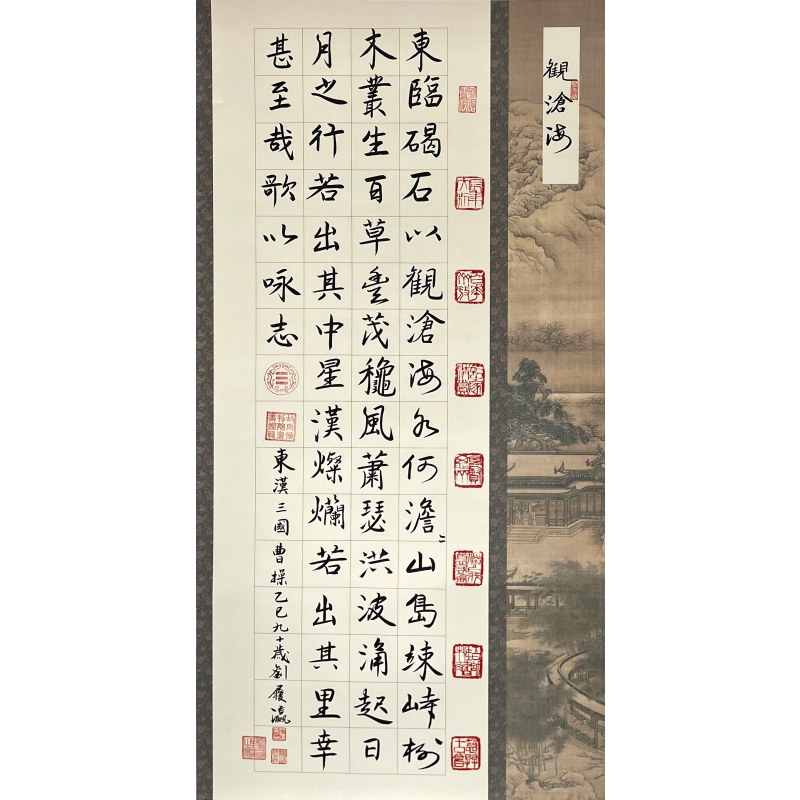 觀滄海
東臨碣石以觀滄海水何澹〻山島竦峙樹
木叢生百草豐茂穐風蕭瑟洪波涌起日
月之行若出其中星漢燦爛若出其里幸
甚至哉歌以咏志
東漢三國曹操乙巳九十歲劉履瀛